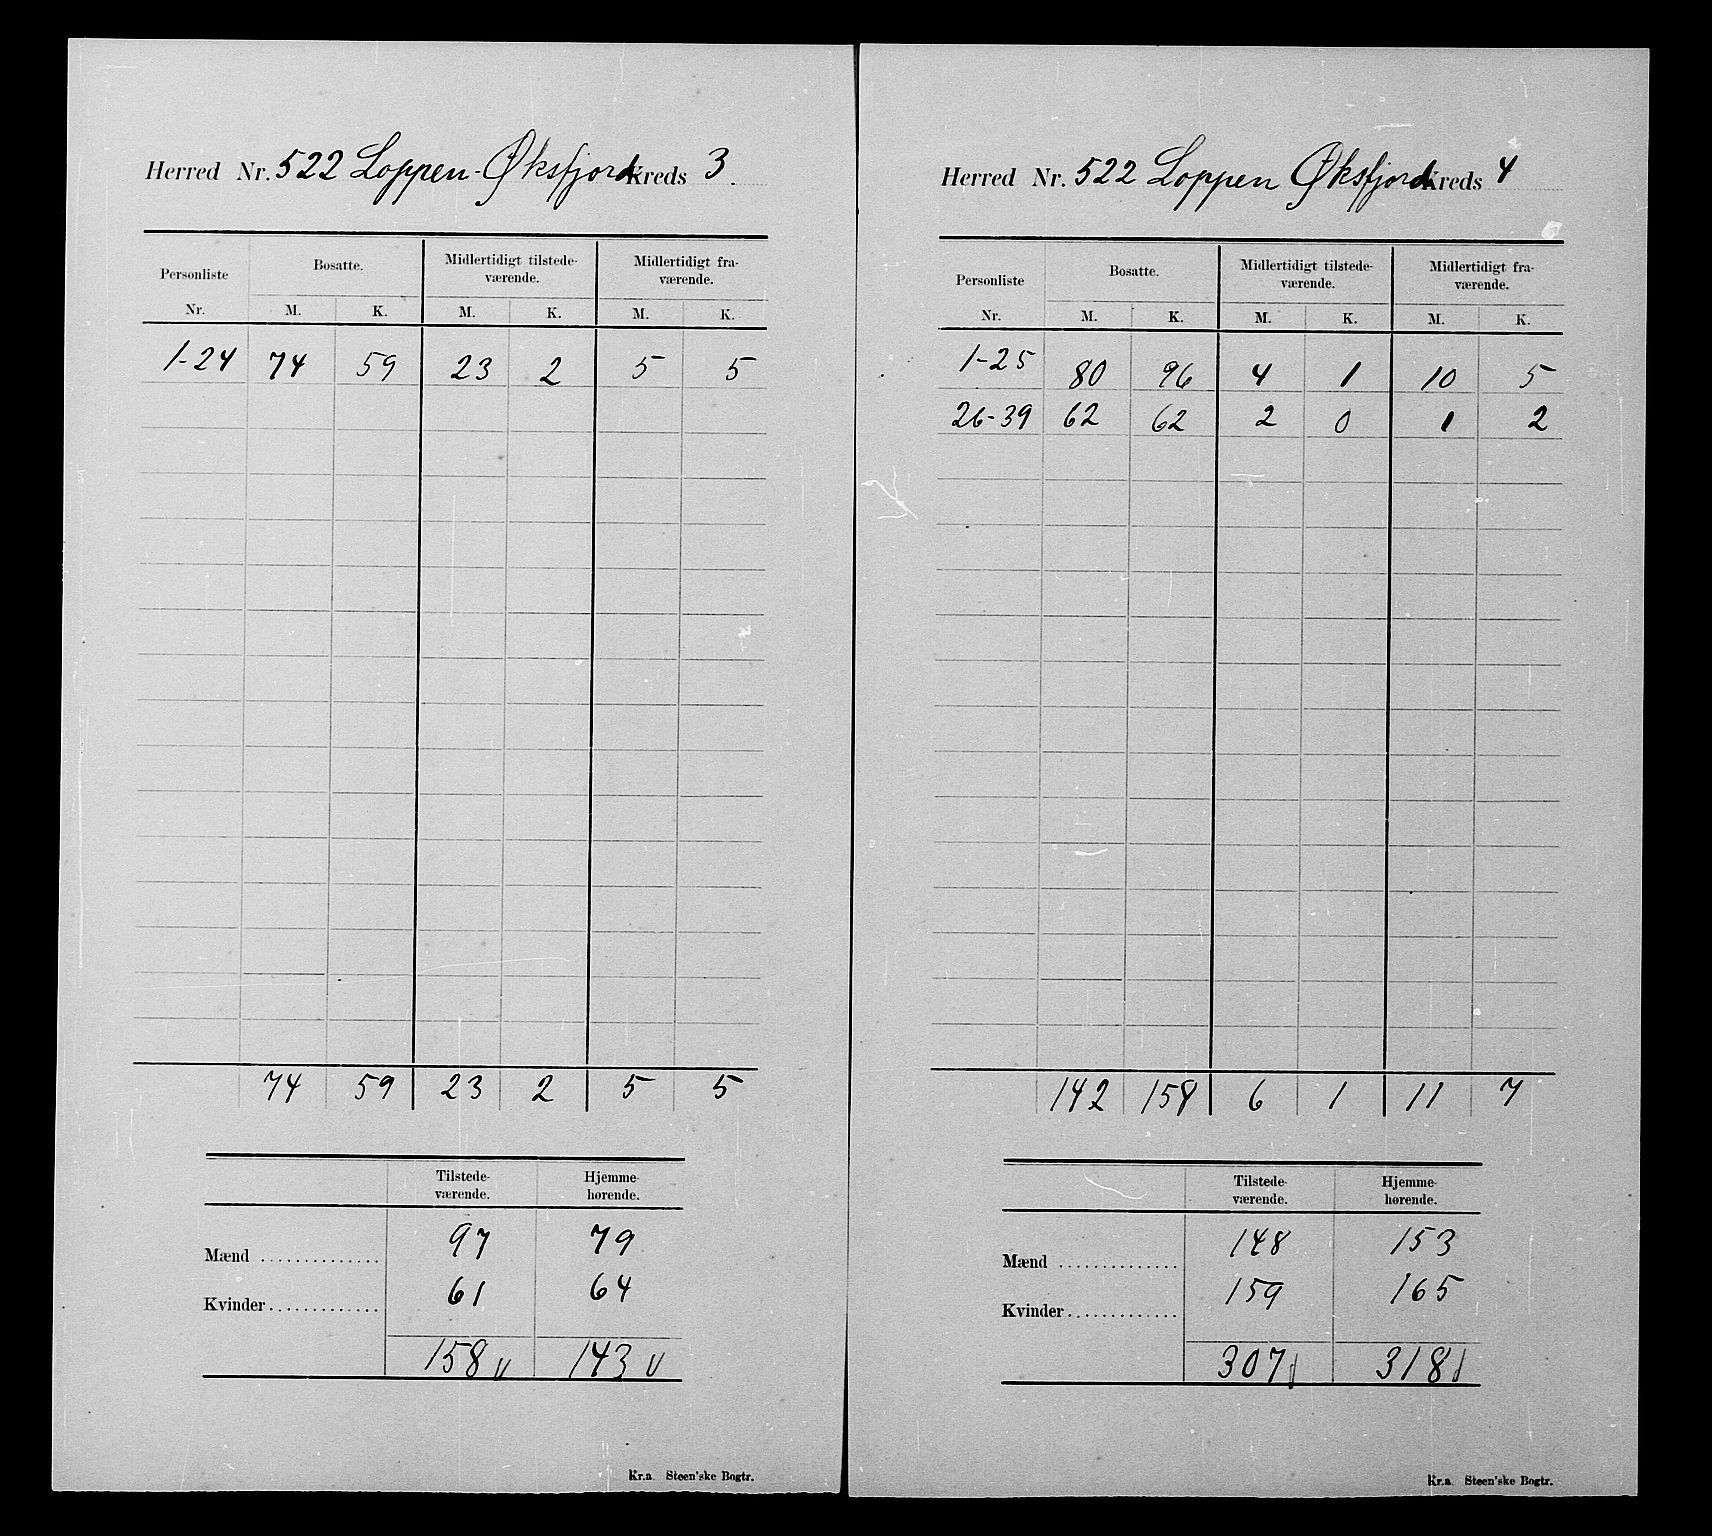 Herred Nr. 522 Loppen-Øksfjord Kreds 3.
Personliste Bosatte. Midlertidigt tilstede- Midlertidigt fra-
værende. værende.
Nr. M. K. M. K. M. K.
1-24 74 59 23 2 5 5
74 59 23 2 5 5
Tilstede- Hjemme-
værende. hørende.
Mænd .............. 97 79
Kvinder ............. 61 64
158 143
Kr.a. Steen'ske Bogtr.
Herred Nr. 522 Loppen Øksfjord Kreds 4
Personliste Bosatte. Midlertidigt tilstede- Midlertidigt fra-
værende. værende.
Nr. M. K. M. K. M. K.
1-25 80 96 4 1 10 5
26-39 62 62 2 0 1 2
142 158 6 1 11 7
Tilstede- Hjemme-
værende. hørende.
Mænd .............. 148 153
Kvinder ............. 159 165
307 318
Kr.a. Steen'ske Bogtr.